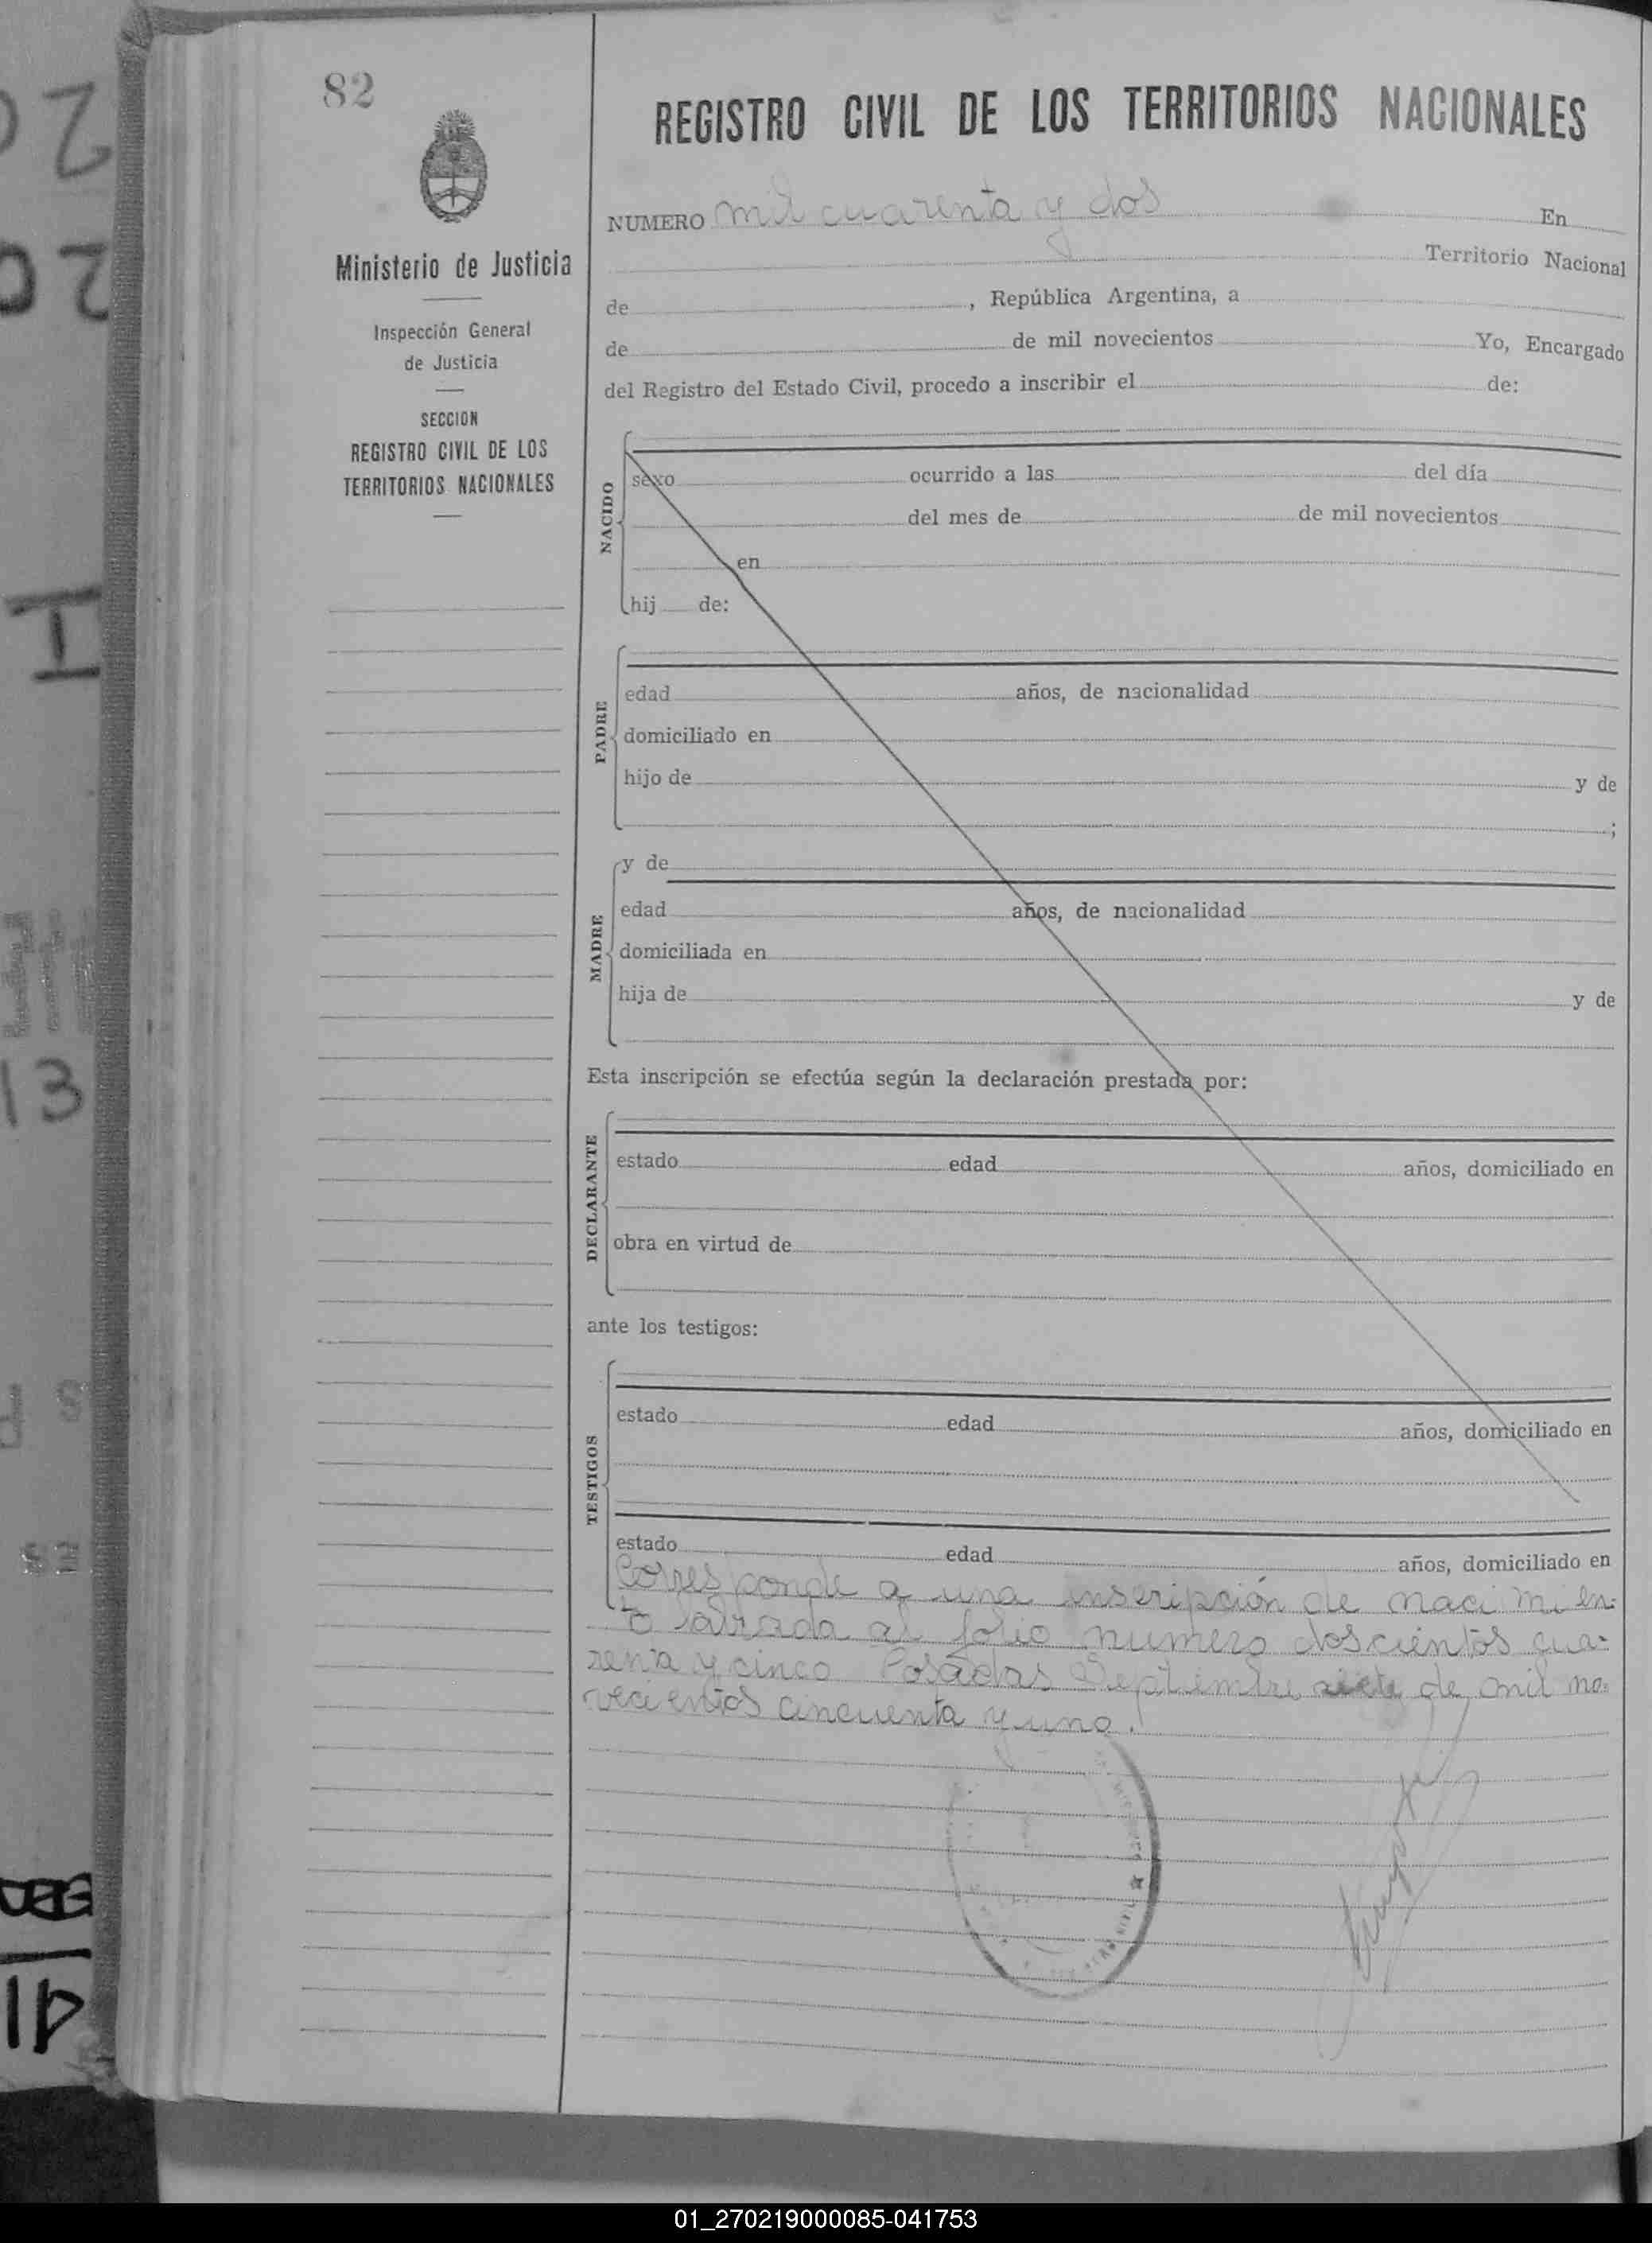 82
REGISTRO CIVIL DE LOS TERRITORIOS NACIONALES
Ministerio de Justicia
Inspección General
de Justicia
SECCION
REGISTRO CIVIL DE LOS
TERRITORIOS NACIONALES
NUMERO mil cuarenta y dos En
Territorio Nacional
de , República Argentina, a
de de mil novecientos Yo, Encargado
del Registro del Estado Civil, procedo a inscribir el de:
NACIDO
sexo ocurrido a las del día
del mes de de mil novecientos
en
hij de:
PADRE
edad años, de nacionalidad
domiciliado en
hijo de y de
;
MADRE
y de
edad años, de nacionalidad
domiciliada en
hija de y de
Esta inscripción se efectúa según la declaración prestada por:
DECLARANTE
estado edad años, domiciliado en
obra en virtud de
ante los testigos:
TESTIGOS
estado edad años, domiciliado en
estado edad años, domiciliado en
Corresponde a una inscripción de nacimien-
to labrada al folio numero doscientos cua-
renta y cinco Posadas Septiembre siete de mil no-
vecientos cincuenta y uno.
01_270219000085-041753